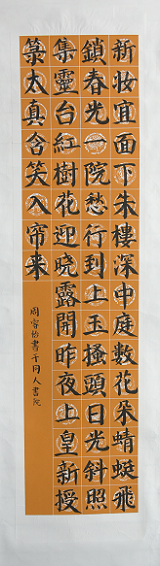 新妝宜面下朱樓深中庭數花朵蜻蜓飛
鎖春光一院愁行到上玉搔頭日光斜照
集靈台紅樹花迎曉露開昨夜上皇新授
籙太真含笑入帘来
書于同人書院